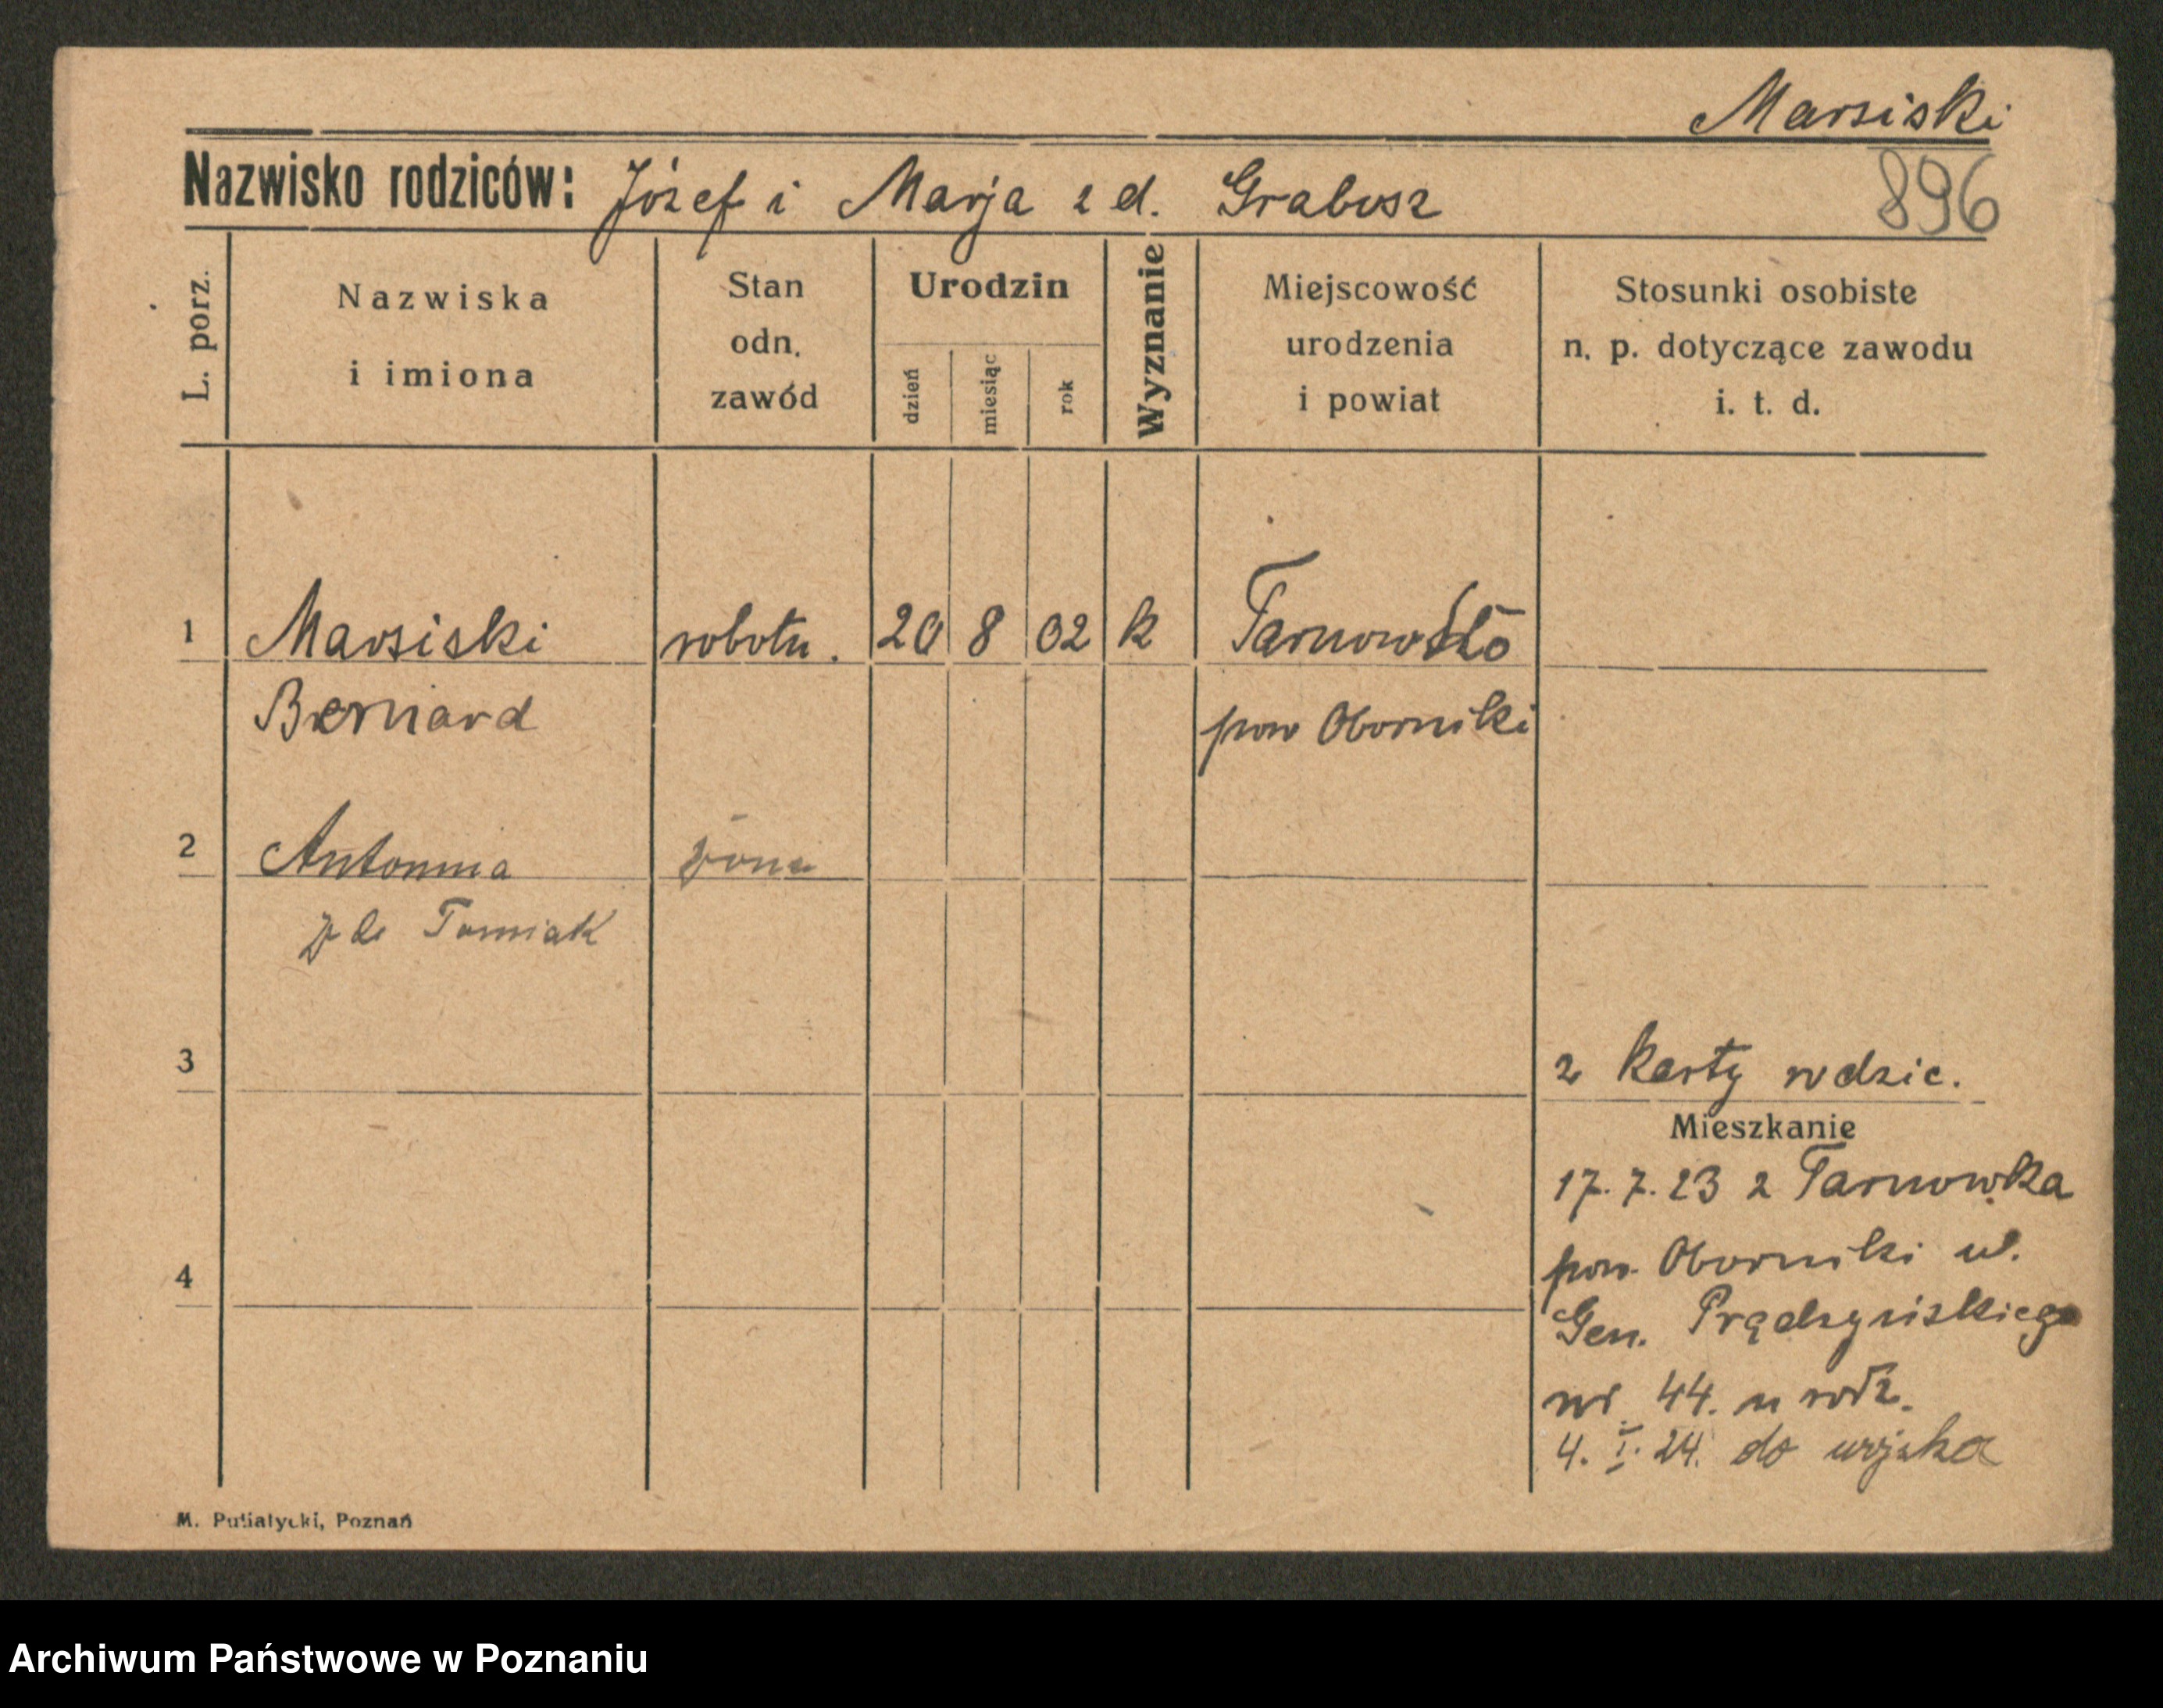 Marsiski
Nazwisko rodziców: Józef i Marja z d. Grabusz
896
L. porz.
Nazwiska
i imiona
Stan
odn.
zawód
Urodzin
dzień
miesiąc
rok
Wyznanie
Miejscowość
urodzenia
i powiat
Stosunki osobiste
n. p. dotyczące zawodu
i. t. d.
1 Marsiski robotn. 20 8 02 k
Bernard pow Oborniki
2 Antonina żona
z d. Tomiak
3 z karty rodzic.
Mieszkanie
17.7.23 z Tarnowka
4 pow. Oborniki ul.
Gen. Prądzyńskiego
nr. 44. u rodz.
4. I. 24. do wojska
M. Putiatycki, Poznań
Archiwum Państwowe w Poznaniu